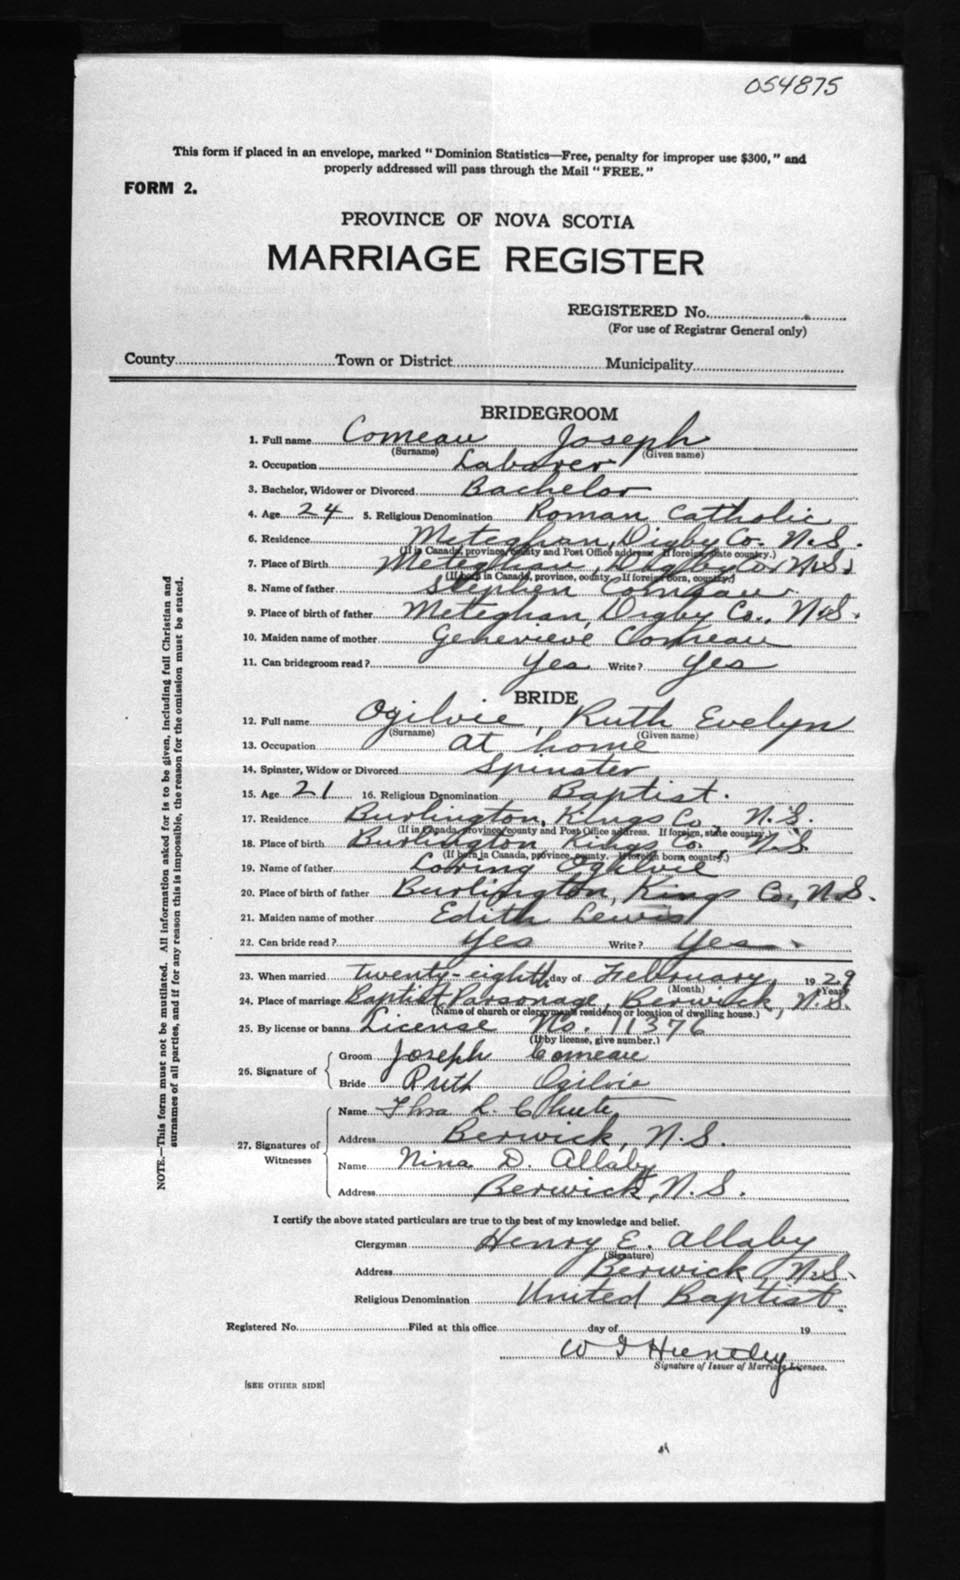 054875
This form if placed in an envelope, marked "Dominion Statistics—Free, penalty for improper use $300," and
properly addressed will pass through the Mail "FREE."
FORM 2.
PROVINCE OF NOVA SCOTIA
MARRIAGE REGISTER
REGISTERED No.
(For use of Registrar General only)
County Town or District Municipality
BRIDEGROOM
1. Full name Comeau Joseph
(Surname) (Given name)
2. Occupation Laborer
3. Bachelor, Widower or Divorced Bachelor
4. Age 24 5. Religious Denomination Roman Catholic
6. Residence Meteghan, Digby Co. N.S.
(If in Canada, province, county and Post Office address. If foreign state country.)
7. Place of Birth Meteghan, Digby Co. N.S.
(If born in Canada, province, county. If foreign born, country.)
8. Name of father Stephen Comeau
9. Place of birth of father Meteghan, Digby Co., N.S.
10. Maiden name of mother Genevieve Comeau
11. Can bridegroom read? Yes Write? Yes
BRIDE
12. Full name Ogilvie, Ruth Evelyn
(Surname) (Given name)
13. Occupation at home
14. Spinster, Widow or Divorced Spinster
15. Age 21 16. Religious Denomination Baptist.
17. Residence Burlington, Kings Co, N.S.
(If in Canada, province, county and Post Office address. If foreign, state country.)
18. Place of birth Burlington Kings Co., N.S.
(If born in Canada, province, county. If foreign born, country.)
19. Name of father Loring Ogilvie
20. Place of birth of father Burlington, Kings Co., N.S.
21. Maiden name of mother Edith Lewis
22. Can bride read? Yes Write? Yes
23. When married twenty-eighth day of February 1929
(Month) (Year)
24. Place of marriage Baptist Parsonage, Berwick, N.S.
(Name of church or clergyman's residence or location of dwelling house.)
25. By license or banns License No. 11376
(If by license, give number.)
26. Signature of
Groom Joseph Comeau
Bride Ruth Ogilvie
27. Signatures of Witnesses
Name L. Chute
Address Berwick, N.S.
Name Nina D. Allaby
Address Berwick, N.S.
I certify the above stated particulars are true to the best of my knowledge and belief.
Clergyman Henry E. Allaby
(Signature)
Address Berwick, N.S.
Religious Denomination United Baptist.
Registered No. Filed at this office day of 19
W Huntley
Signature of Issuer of Marriage Licenses.
[SEE OTHER SIDE]
NOTE.—This form must not be mutilated. All information asked for is to be given, including full Christian and
surnames of all parties, and if for any reason this is impossible, the reason for the omission must be stated.